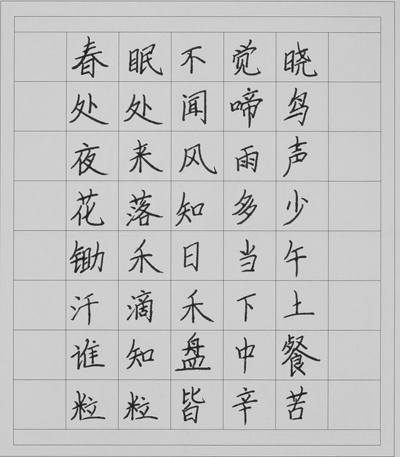 春眠不觉晓
处处闻啼鸟
夜来风雨声
花落知多少
锄禾日当午
汗滴禾下土
谁知盘中餐
粒粒皆辛苦